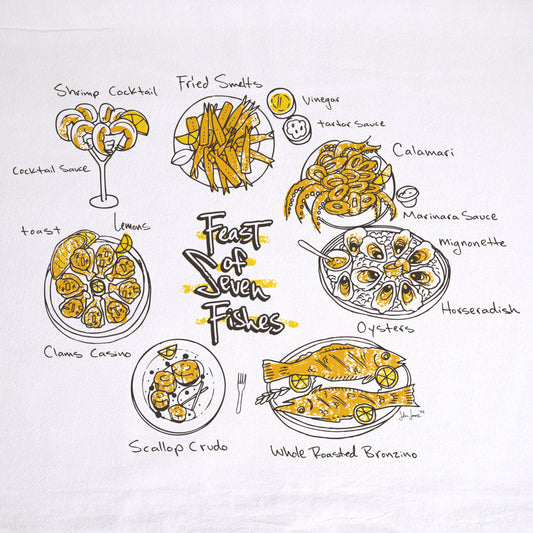 Shrimp Cocktail
Fried Smelts
Vinegar
tartar Sauce
Cocktail Sauce
Calamari
Marinara Sauce
toast
Lemons
Feast
of
Seven
Fishes
Mignonette
Horseradish
Oysters
Clams Casino
Scallop Crudo
Whole Roasted Bronzino